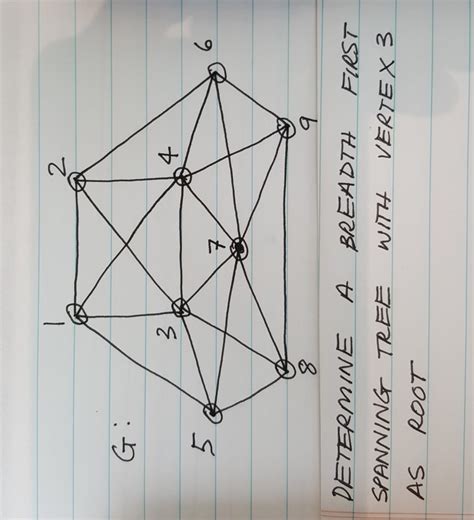 1 2
G:
3 4
5 7 6
8 9
DETERMINE A BREADTH FIRST
SPANNING TREE WITH VERTEX 3
AS ROOT